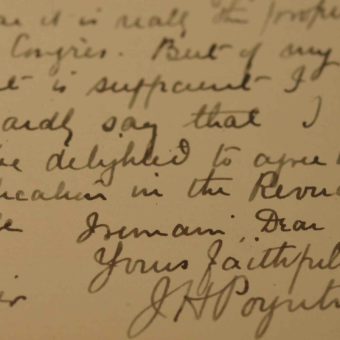 it is really the proper
Congrès. But if my
t is sufficient I
ardly say that I
be delighted to agree
ication in the Revue
I remain, Dear
Yours faithful
J H Poynti